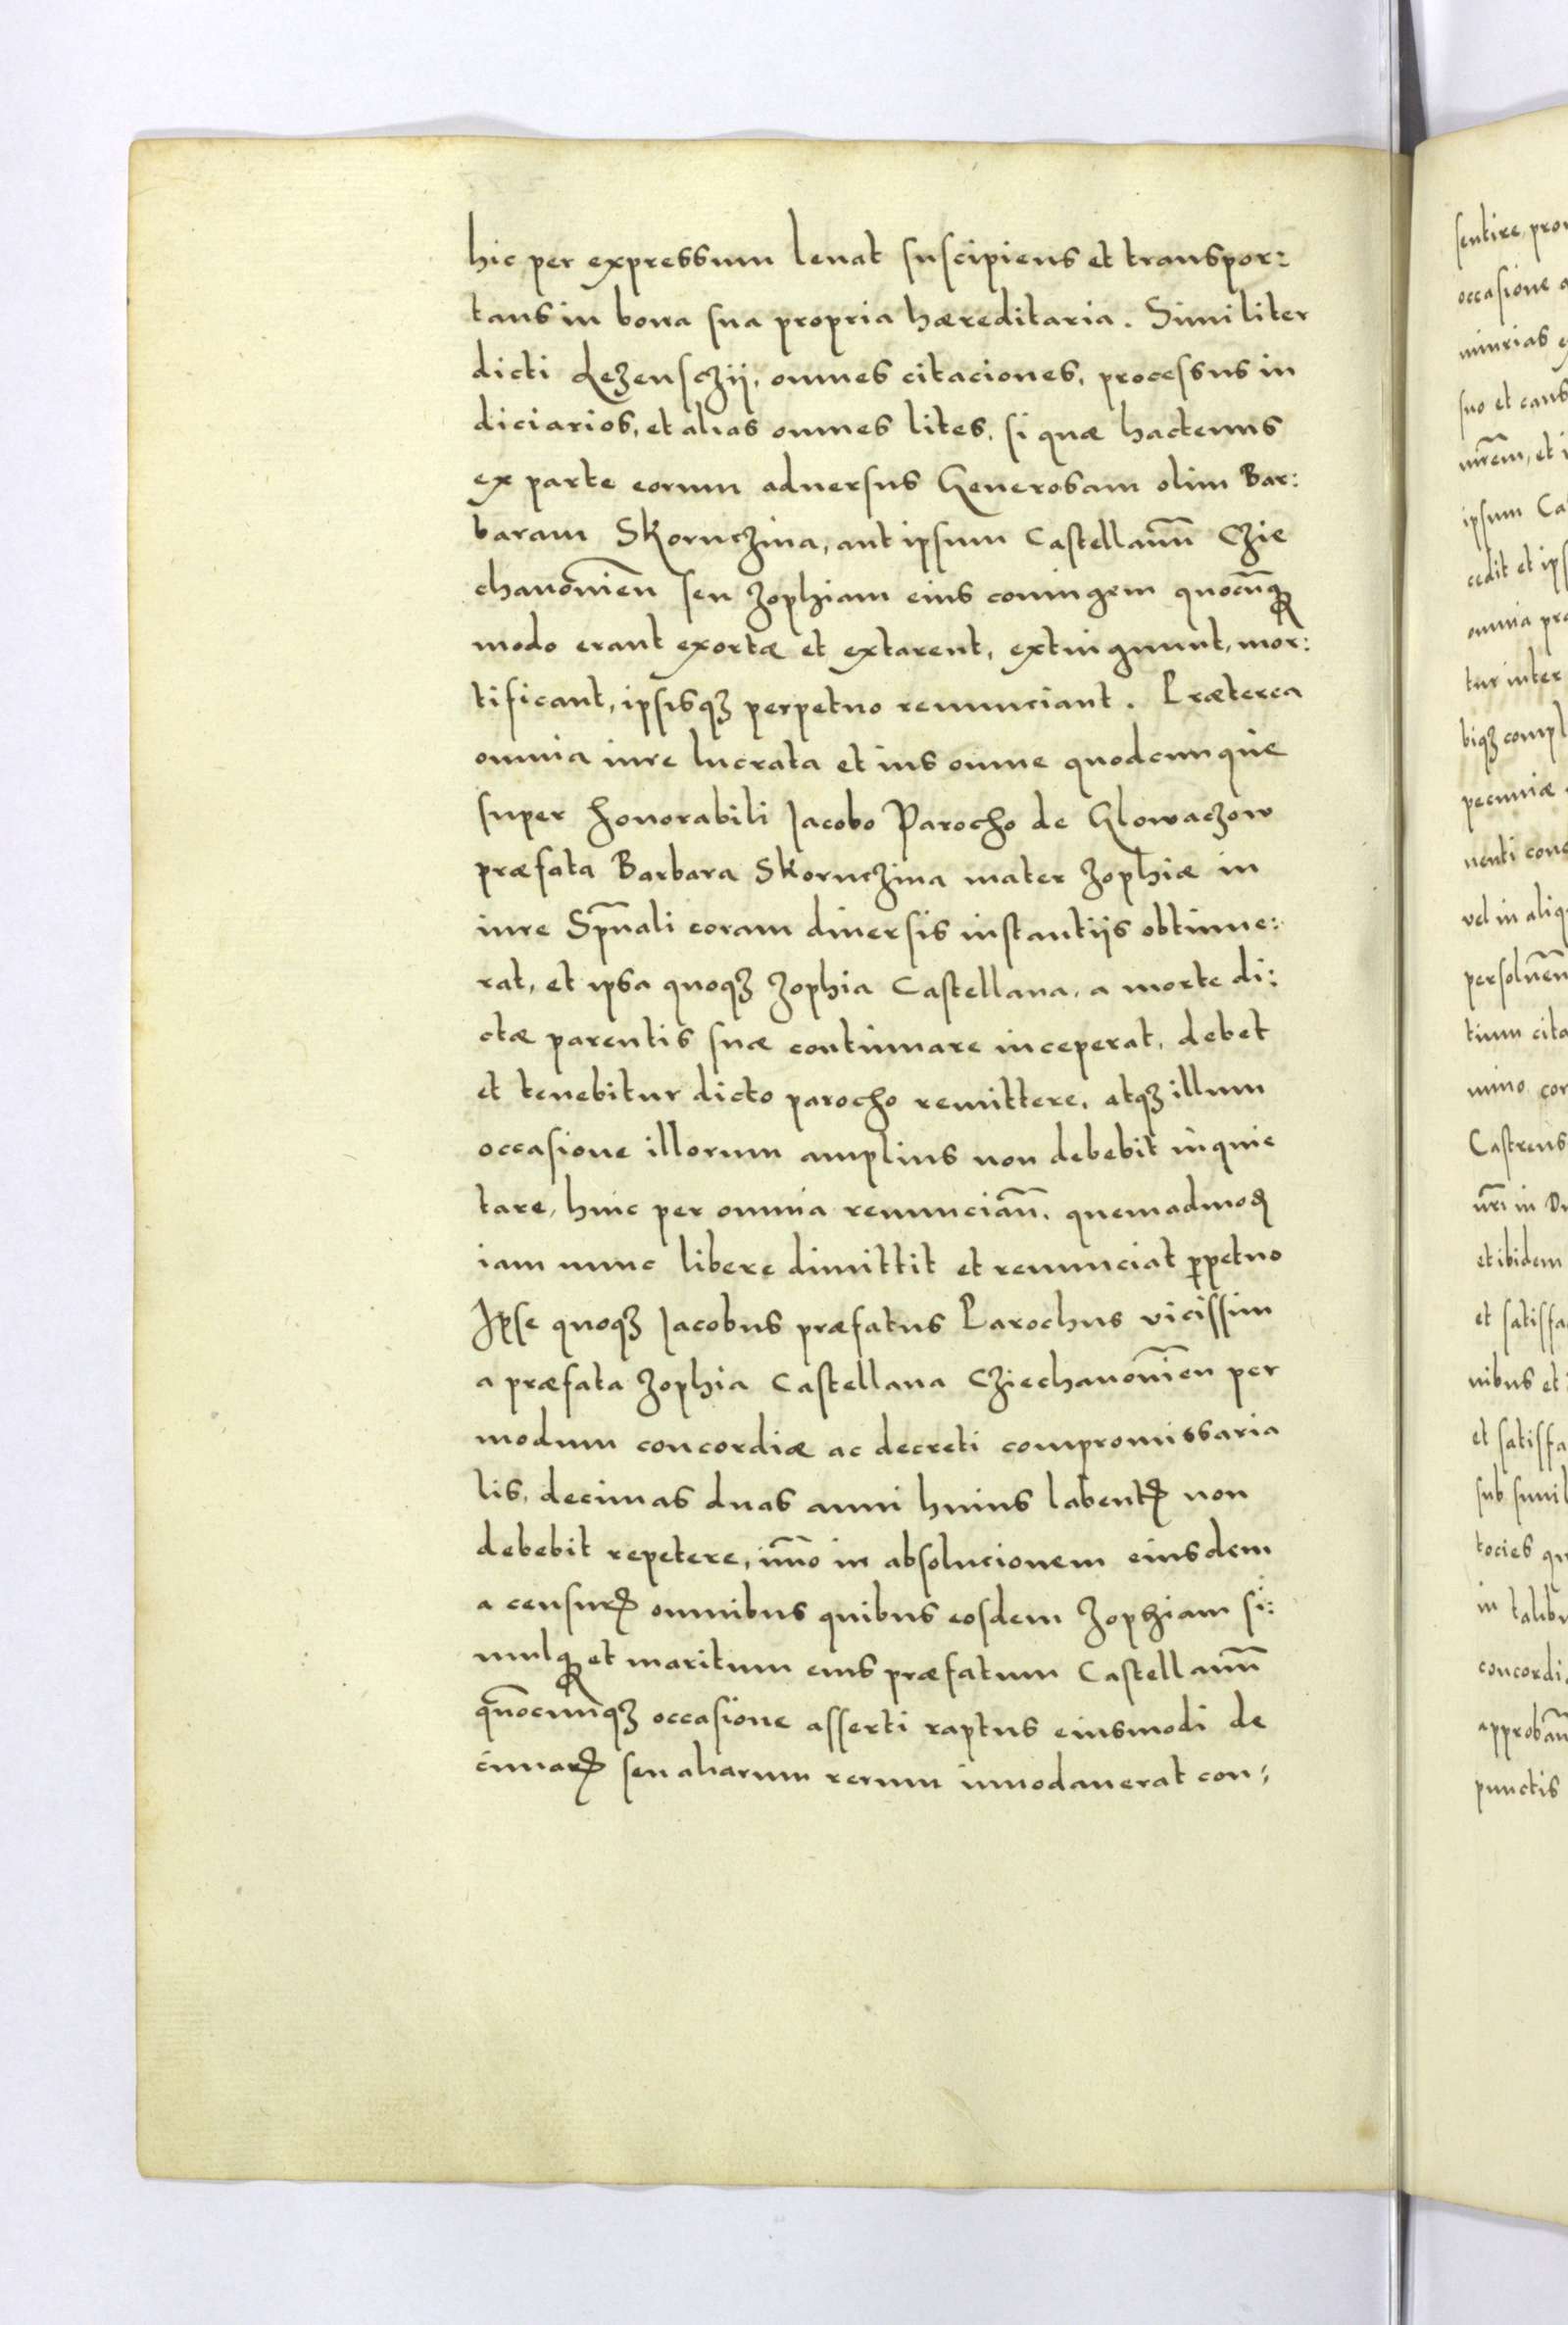 hic per expressum leuat suscipiens et transpor:
tans in bona sua propria hæreditaria. Similiter
dicti Lezenszij, omnes citaciones, processus iu
diciarios, et alias omnes lites, si quæ hactenus
ex parte eorum aduersus Generosam olim Bar:
baram Skornczina, aut ipsum Castellanū Czie
chanouien̄ seu Zophiam eius coniugem quocūq̷
modo erant exortæ et extarent, extingunnt, mor:
tificant, ipsisqꝫ perpetuo renunciant. Præterea
omnia iure lucrata et ius omne quodcunque
super Honorabili Jacobo Parocho de Glowaczow
præfata Barbara Skornczina mater Zophiæ in
iure Sp̄uali coram diuersis instantijs obtinue:
rat, et ipsa quoqꝫ Zophia Castellana, a morte di:
ctæ parentis suæ continuare inceperat, debet
et tenebitur dicto parocho remittere, atqꝫ illum
occasione illorum amplius non debebit inquie
tare, hinc per omnia renunciañ. quemadmoꝺ̨
iam nunc libere dimittit et renunciat ꝑpetuo
Ipse quoqꝫ Jacobus præfatus Parochus vicissim
a præfata Zophia Castellana Cziechanouien̄ per
modum concordiæ ac decreti compromissaria
lis, decimas duas anni huius labentꝭ non
debebit repetere, im̄o in absolucionem eiusdem
a censurꝭ omnibus quibus eosdem Zophiam si:
mulq̷ et maritum eius præfatum Castellanū
quōcunqꝫ occasione asserti raptus eiusmodi de
cimarꝝ seu aliarum rerum innodauerat con:
sentire
occasione
iniurias
suo et
ipsum
cedit et
omnia
tur inter
biqꝫ
pecuniæ
uenti
vel in
tium
nimo
Castrens
nr̄i in
et ibidem
et
nibus et
et
sub
tocies
in
punctis